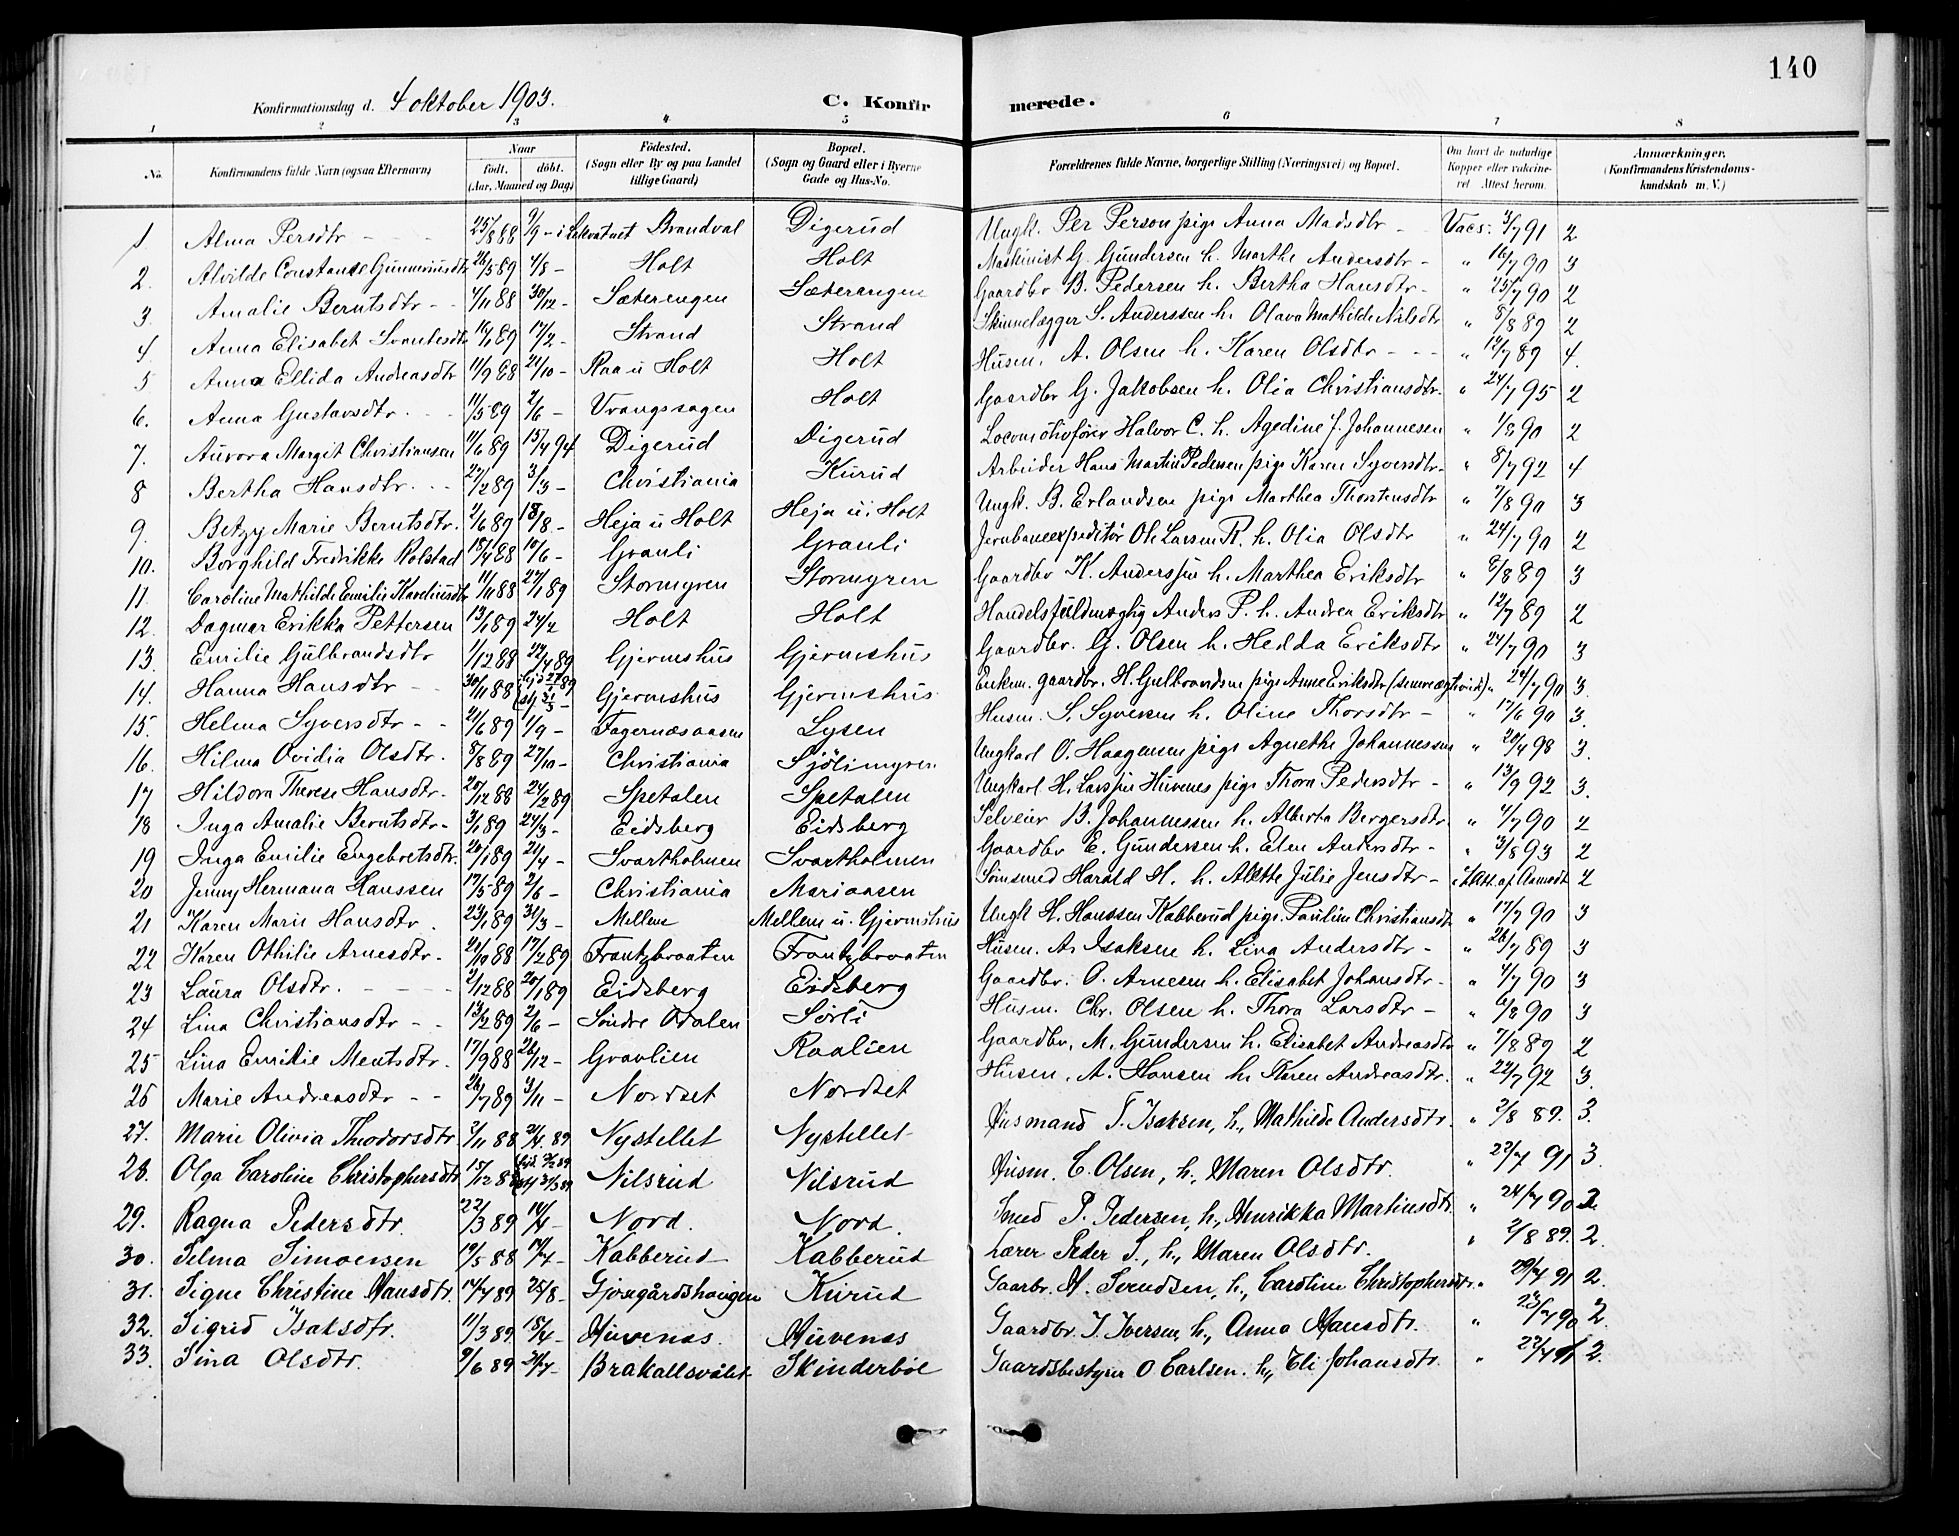 140
Konfirmationsdag d. 4 oktober 1903. C. Konfirmerede.
1 2 3 4 5 6 7 8
No. Konfirmandens fulde Navn (ogsaa Efternavn) Naar født. døbt. (Aar, Maaned og Dag) Fødested. (Sogn eller By og paa Landet tillige Gaard) Bopæl. (Sogn og Gaard eller i Byerne Gade og Hus-No. Forældrenes fulde Navne, borgerlige Stilling (Næringsvei) og Bopæl. Om havt de naturlige Kopper eller vakcineret. Attest herom. Anmærkninger. (Konfirmandens Kristendomskundskab m. V.)
1 Alma Persdtr 25/8 88 9/9 - Brandval Digerud Ungk. Per Person pige Anna Madsdtr Vacs: 3/7 91 2
2. Alvilde Constanse Gunneriusdtr 26/5 89 4/8 - Holt Holt Maskinist G. Gundersen h. Marthe Andersdtr - " 16/7 90 3
3. Amalie Berntsdtr 4/11 88 30/12 - Sæterengen Sæterengen Gaardbr B. Pedersen h. Bertha Hansdtr - " 25/7 90 2
4. Anna Elisabet Svantesdtr 16/1 89 17/2 - Strand Strand Skinnelægger S. Anderssen h. Olava Mathilde Nilsdtr " 8/8 89 2
5 Anna Ellida Andreasdtr 11/9 88 21/10 - Raa u Holt Holt Husm. A. Olsen h. Karen Olsdtr - " 12/7 89 4.
6. Anna Gustavsdtr. 11/5 89 2/6 - Vrangssagen Holt Gaardbr G. Jakobsen h. Olia Christiansdtr. " 24/7 95 2
7. Aurora Margit Christiansen 11/6 89 15/4 94 Digerud Digerud Locomotivfører Halvor C. h. Agedine f. Johannesen " 1/8 90 2
8 Bertha Hansdtr. 22/2 89 3/3 - Christiania Kurud Arbeider Hans Martin Pedersen pige Karen Syversdtr. " 8/7 92 4
9. Betzy Marie Berntsdtr. 2/6 89 18/8 - Heja u Holt Heja u. Holt Ungk. B. Erlandsen pige Marthea Thorstensdtr " 7/8 90 3
10. Borghild Fredrikke Rolstad 18/4 88 10/6 - Granli Granli Jernbaneexpeditør Ole Larsen R. h. Olia Olsdtr " 24/7 90 2
11. Caroline Mathilde Emilie Kareliusdtr 11/11 88 27/1 89 Stormyren Stormyren Gaardbr K. Anderssen h. Marthea Eriksdtr " 8/8 89 3
12. Dagmar Erikka Pettersen 13/1 89 24/2 Holt Holt Handelsfuldmægtig Anders P. h. Andrea Eriksdtr " 12/7 89 2
13. Emilie Gulbrandsdtr 1/12 88 22/4 89 Gjermshus Gjermshus Gaardbr. G. Olsen h. Hedda Eriksdtr " 24/7 90 3
14. Hanna Hansdtr 30/11 88 Gjermshus Gjermshus Enkem. gaardbr. H. Gulbrandsen pige Anne Eriksdtr " 24/7 90 3.
15. Helma Syversdtr 21/6 89 1/9 - Fagernæsaasen Lysen Husm. S. Syversen h. Oline Thorsdtr - " 17/6 90 3.
16. Hilma Ovidia Olsdtr. 8/8 89 27/10 - Christiania Sjölimyren Ungkarl O. Haagensen pige Agnethe Johannessen " 20/4 98 3.
17 Hildora Therese Hansdtr. 20/12 88 24/2 89 Spetalen Spetalen Ungkarl H. Larssen Huvenes pige Thora Pedersdtr - " 13/9 92 3.
18 Inga Amalie Berntsdtr. 3/1 89 24/3 - Eidsberg Eidsberg Selveier B. Johannessen h. Alberta Bergersdtr. " 4/7 90 2
19 Inga Emilie Engebretsdtr. 20/1 89 21/4 - Svartholmen Svartholmen Gaardbr E. Gundersen h. Elen Andersdtr - " 3/8 93 2
20 Jenny Hermana Hanssen 17/5 89 2/6 - Christiania Mariaasen Sömsmed Harald H. h. Alette Julie Jensdtr - 2
21 Karen Marie Hansdtr. 23/1 89 31/3 - Mellem Mellem u. Gjermshus Ungk H. Hanssen Kabberud pige Pauline Christiansdtr " 17/7 90 3
22 Karen Othilie Arnesdtr. 21/10 88 17/2 89 Frantzbraaten Frantzbraaten Husm. A. Isaksen h. Lina Andersdtr - " 26/7 89 3
23 Laura Olsdtr. 2/12 88 20/1 89 Eidsberg Eidsberg Gaardbr. O. Arnesen h. Elisabet Johansdtr. " 4/7 90 3
24 Lina Christiansdtr 13/2 89 2/6 - Söndre Odalen Sørli Husm. Chr. Olsen h. Thora Larsdtr - " 6/8 90 3
25 Lina Emilie Mentsdtr. 17/9 88 26/12 - Gravlien Raalien Gaardbr. M. Gundersen h. Elisabet Andreasdtr " 7/8 89 2
26 Marie Andreasdtr 26/7 89 3/11 - Nordset Nordset Husm. A. Hansen h. Karen Andreasdtr. " 22/7 92 3.
27. Marie Olivia Theodorsdtr 2/11 88 21/4 89 Nystellet Nystellet Husmand T. Isaksen, h., Mathilde Andersdtr. " 2/8 89. 3.
28. Olga Caroline Christophersdtr 15/12 88 Nilsrud Nilsrud Husm. C. Olsen, h., Maren Olsdtr. " 23/7 91 3.
29. Ragna Pedersdtr. 22/3 89 14/4 - Nord. Nord. Smed P. Pedersen, h., Henrikka Martinsdtr. " 24/7 90 2.
30. Selma Simonsen 19/5 88 Kabberud Kabberud Lærer Peder S., h., Maren Olsdtr. " 2/8 89. 2.
31. Signe Christine Hansdtr. 14/4 89 25/8 - Gjosegårdshaugen Kurud Gaarbr. H. Svendsen, h., Caroline Christophersdtr. " 29/7 91 2.
32. Sigrid Isaksdtr. 11/3 89 18/4 - Huvenæs. Huvenæs Gaardbr. I. Iversen, h., Anna Hansdtr. " 23/7 90 2.
33. Sina Olsdtr. 9/6 89 21/7 - Brakallsvålet Skinderböl Gaardsbestyrer O Carlsen. h,, Eli Johansdtr. " 2.